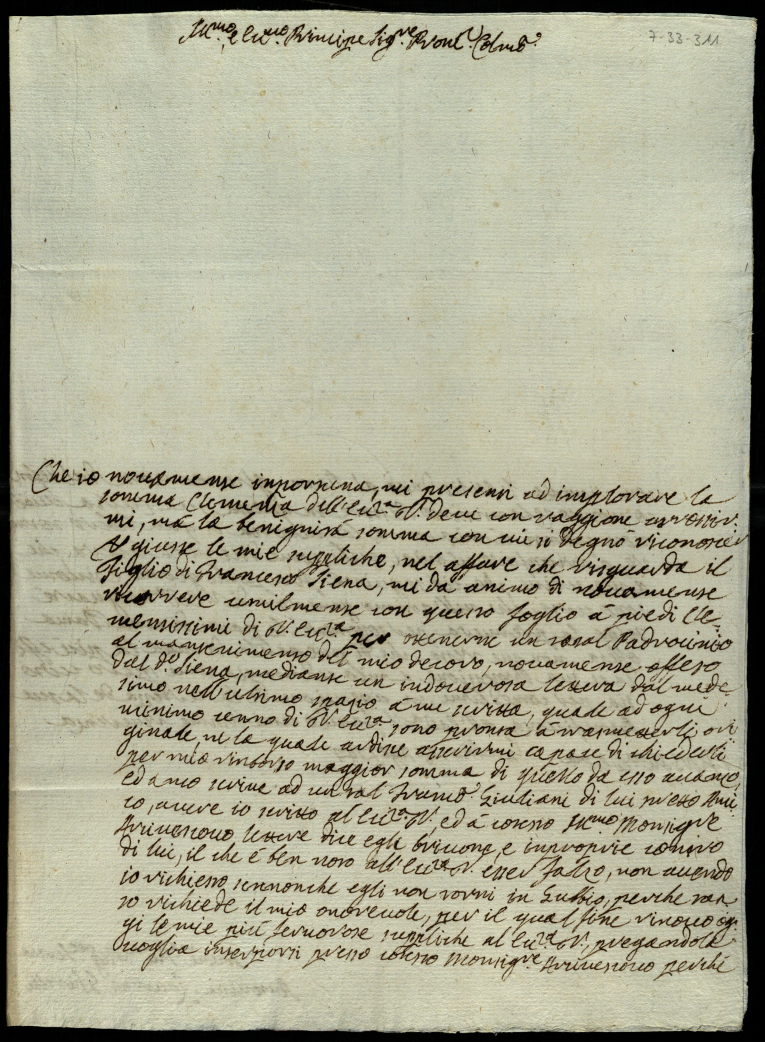 Ill.mo, e Ecc.mo Principe Sig.re Pron.e Colmo
7-33-311
Che io novamente inportuna, mi presenti ad implorare la
somma Clemenza dell'Ecc.za V. deve con raggione arrossir
mi, mà la benignità somma con cui si degnò riconoscer
giuste le mie suppliche, nel affare che risguarda il
Figlio di Francesco Siena, mi dà animo di novamente
ricorrere umilmente con questo foglio à piedi Cle-
mentissimi di V. Ecc.za per ottenerne un total Padrocinio
al mantenimento del mio decoro, novamente offeso
dal d.o Siena, mediante un indoverosa lettera dal mede-
simo nell'ultimo spazio à me scritta, quale ad ogni
minimo cenno di V. Ecc.za sono pronta à trasmetterli ori
ginale, ne la quale ardise asserirmi capace di chiederli
per mio rimborso maggior somma di quello da esso avanzo,
ed anco scrive ad un tal Franc.o Giuliani di lui presso Ami
co, avere io scritto al Ecc.za V., ed à cotesto Ill.mo Monsig.re
Arcivescovo lettere dice egli bricone, e improprie contro
di lui, il che è ben noto all'Ecc.za V. esser falzo, non avendo
io richiesto, sennonche egli non torni in Gubbio, perche tan-
to richiede il mio onorevole, per il qual fine rinovo og-
gi le mie più fervorose suppliche al Ecc.za V., pregandola
voglia interporsi presso cotesto Monsig.re Arcivescovo perché